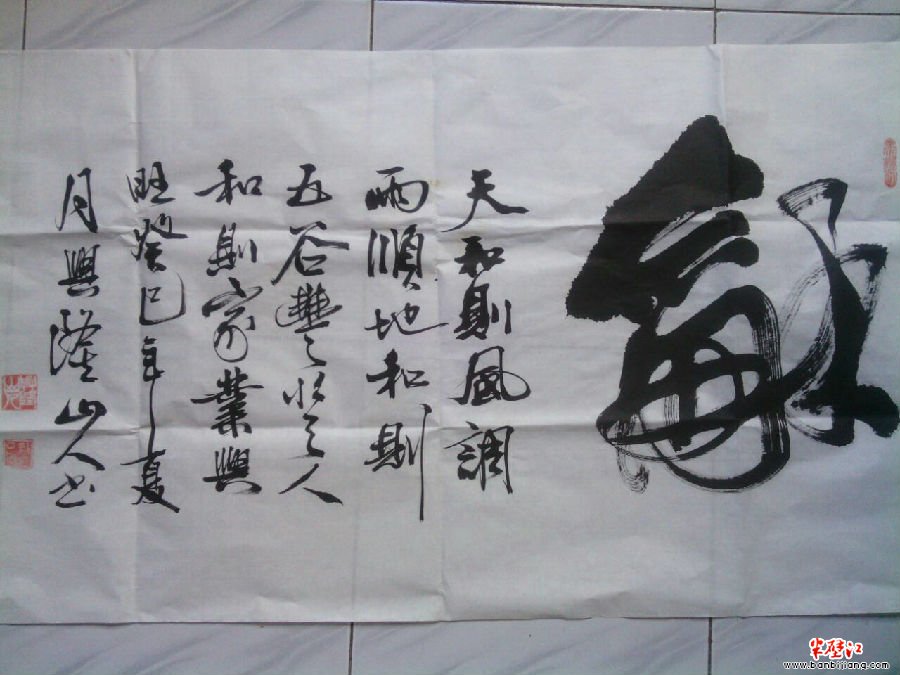 龢
天和則風調
雨順地和則
五谷豐收人
和則家業興
旺癸巳年夏
月興隆山人书
半壁江
www.banbijiang.com